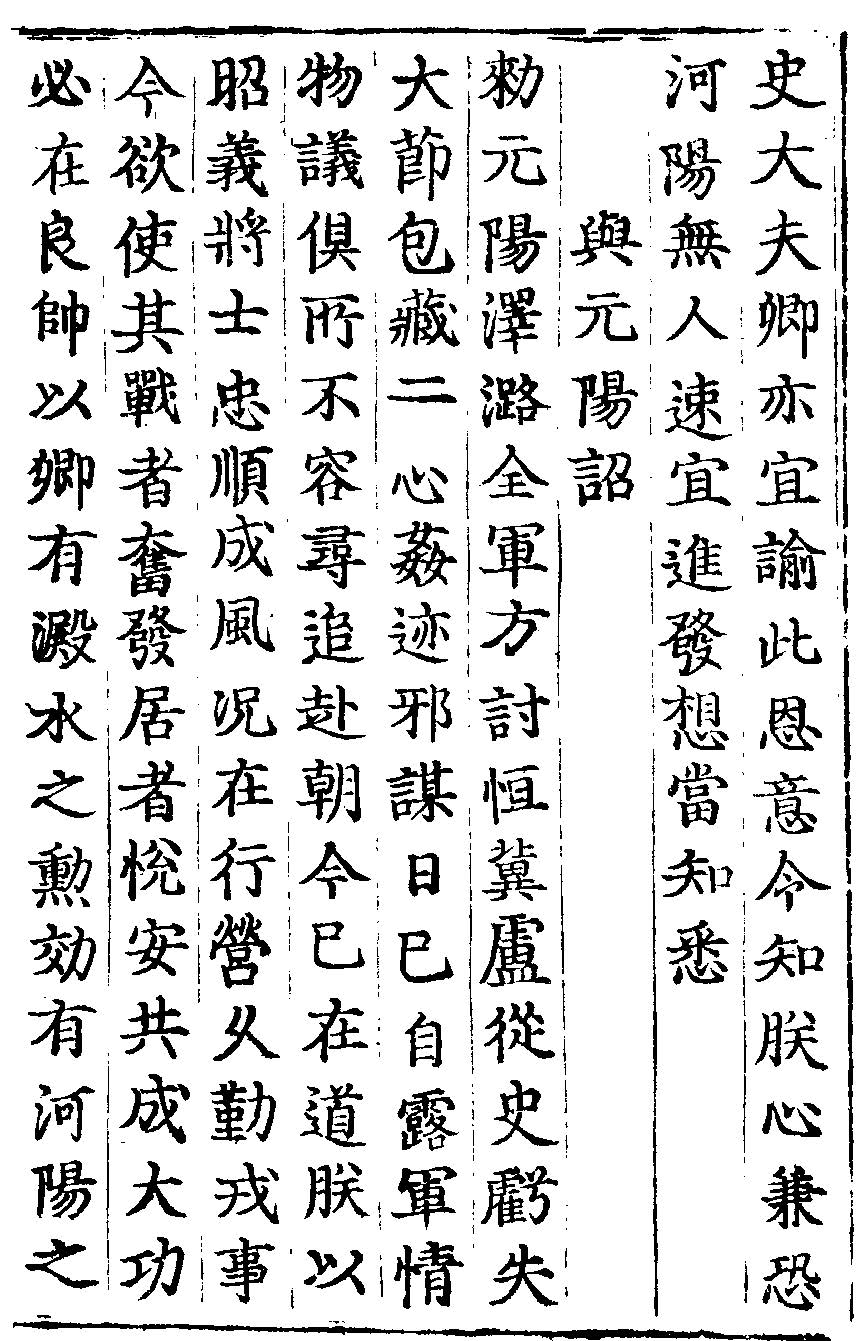 史大夫卿亦宜諭此恩意今知朕心兼恐
河陽無人速宜進發想當知悉
與元陽詔
勑元陽澤潞全軍方討恒冀盧從史虧失
大節包藏二心姦迹邪謀日已自露軍情
物議俱所不容尋追赴朝今已在道朕以
昭義將士忠順成風况在行營久勤戎事
今欲使其戰者奮發居者悅安共成大功
必在良帥以卿有溵水之勲効有河陽之